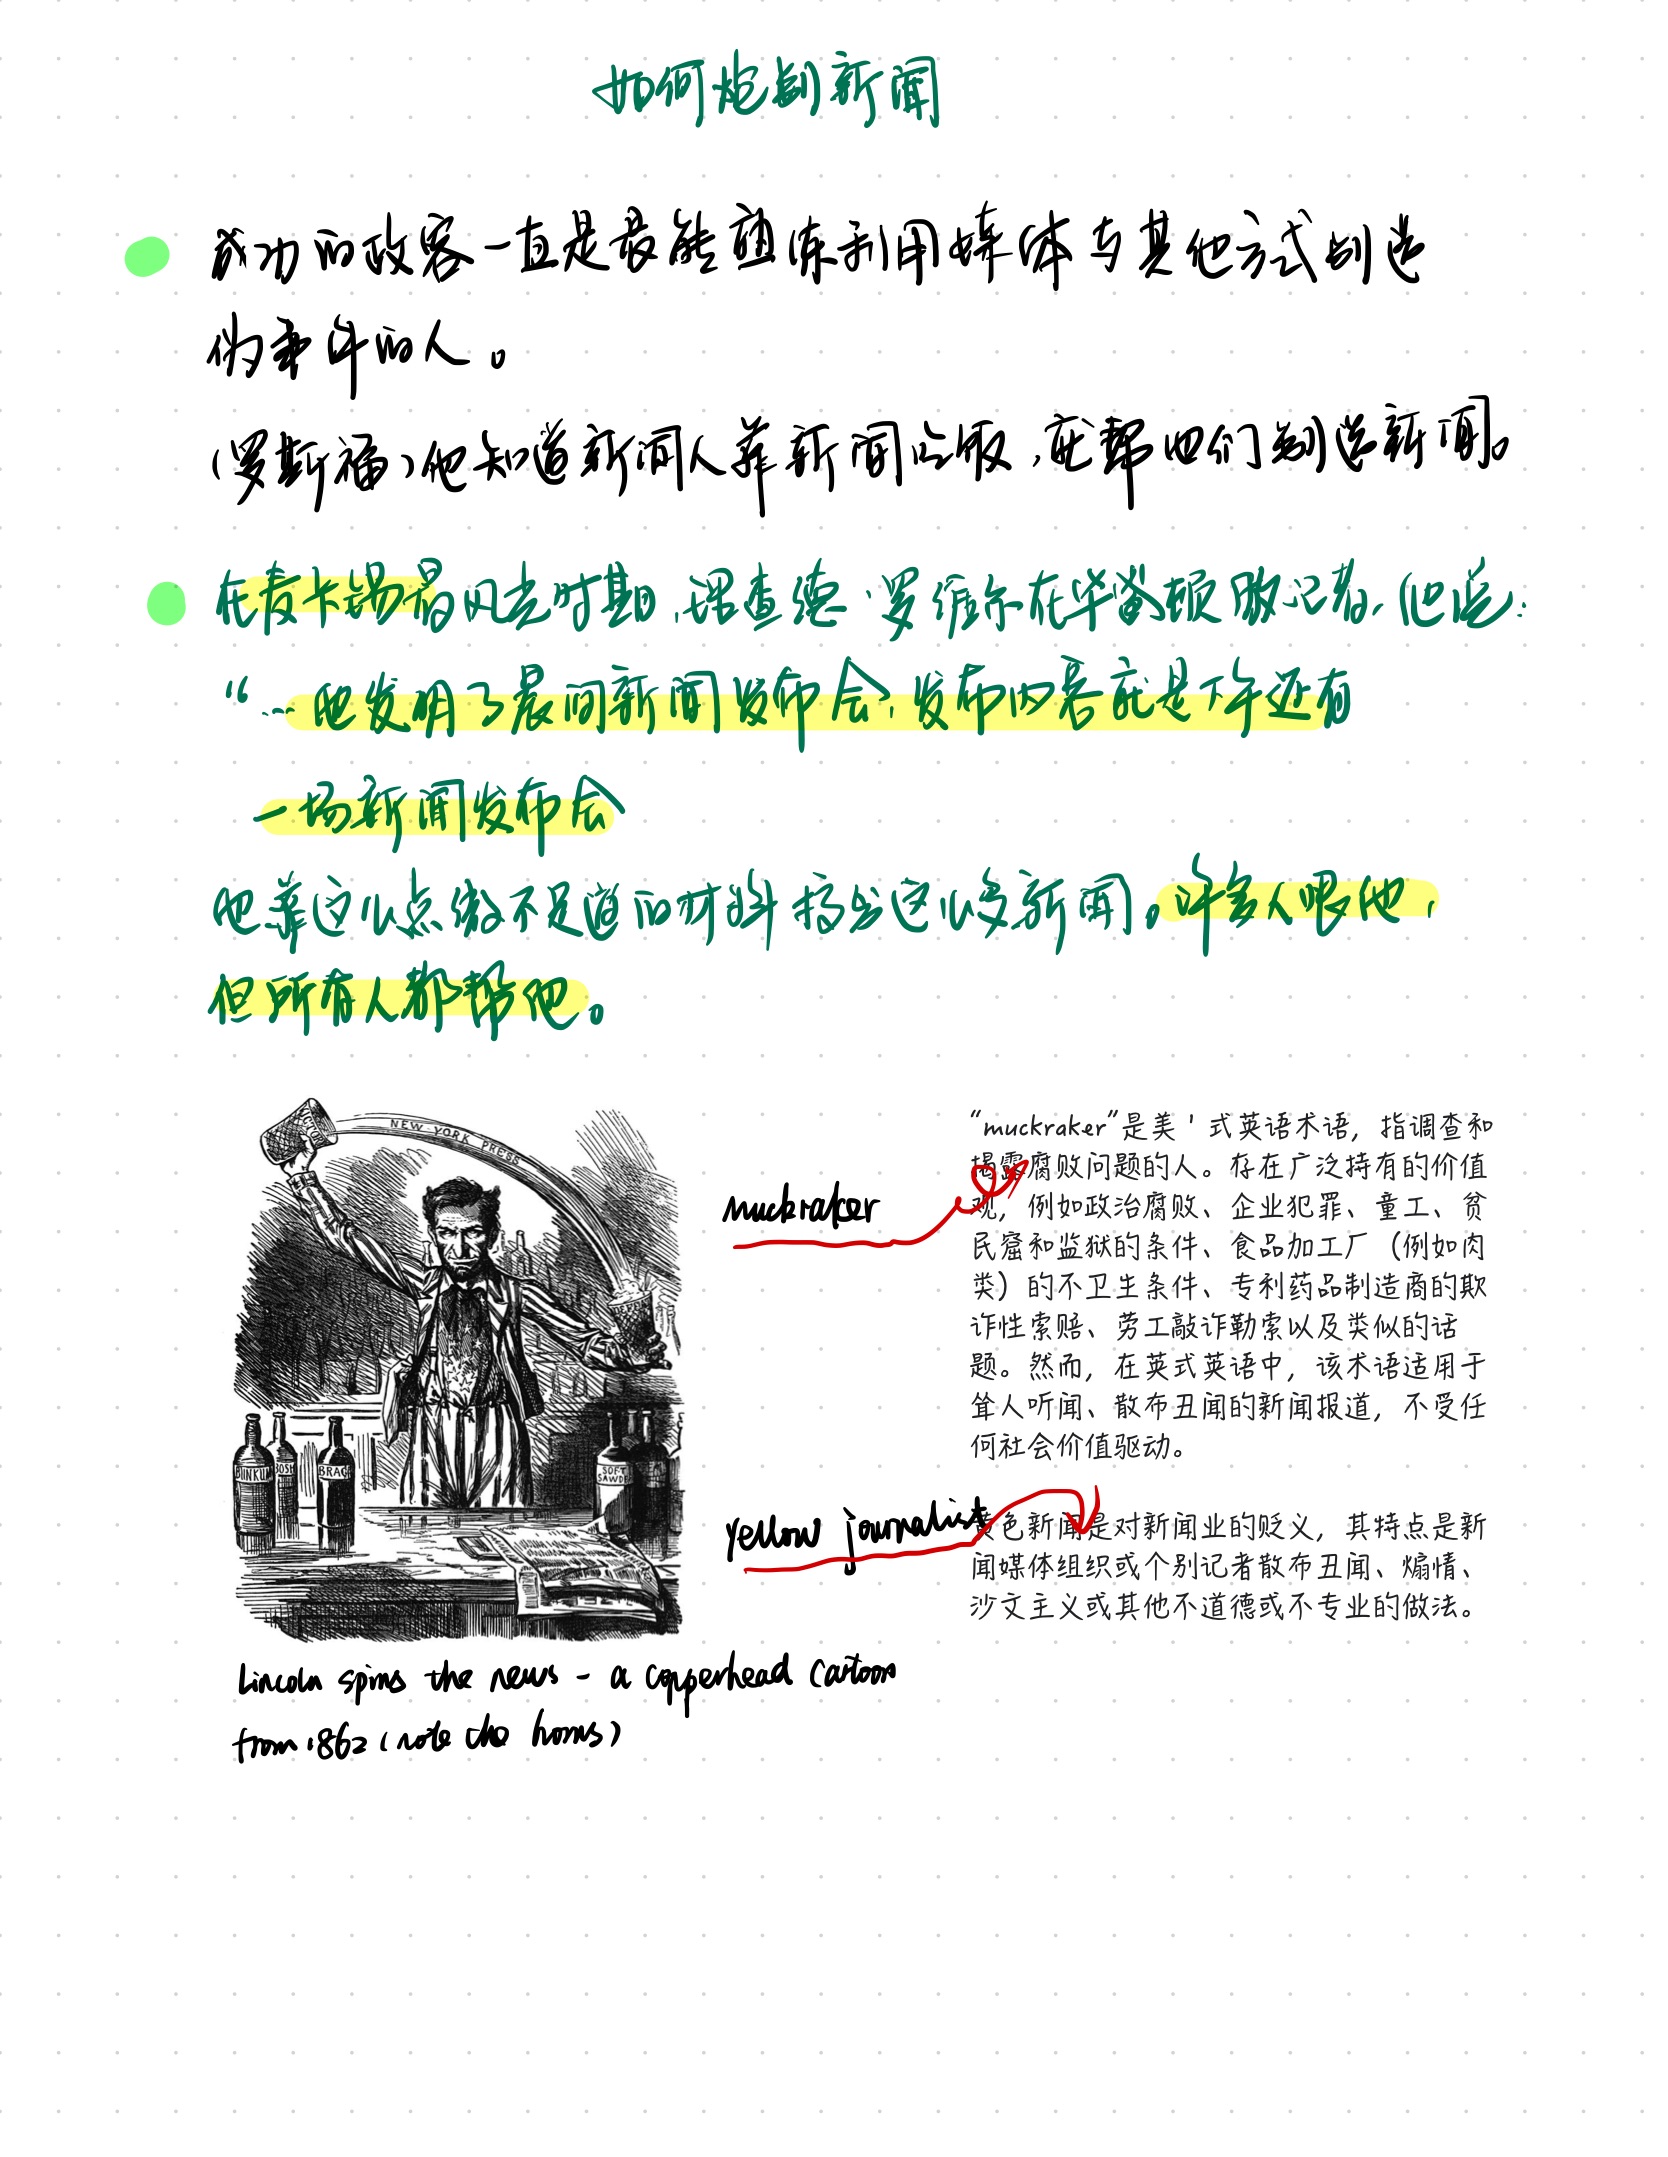 如何炮制新闻
成功的政客一直是最能熟练利用媒体与其他方式制造
伪事件的人。
(罗斯福)他知道新闻人靠新闻吃饭,就帮他们制造新闻。
在麦卡锡最风光时期,理查德·罗维尔在华盛顿做记者,他说:
“…他发明了晨间新闻发布会,发布内容就是下午还有
一场新闻发布会
他靠这么点微不足道的材料搞出这么多新闻。许多人恨他,
但所有人都帮他。
NEW-YORK PRESS
BUNKUM
BOSH
BRAG
SOFT
SAWDER
muckraker
“muckraker”是美'式英语术语，指调查和
揭露腐败问题的人。存在广泛持有的价值
观，例如政治腐败、企业犯罪、童工、贫
民窟和监狱的条件、食品加工厂（例如肉
类）的不卫生条件、专利药品制造商的欺
诈性索赔、劳工敲诈勒索以及类似的话
题。然而，在英式英语中，该术语适用于
耸人听闻、散布丑闻的新闻报道，不受任
何社会价值驱动。
yellow journalist
黄色新闻是对新闻业的贬义，其特点是新
闻媒体组织或个别记者散布丑闻、煽情、
沙文主义或其他不道德或不专业的做法。
Lincoln spins the news - a copperhead cartoon
from 1862 (note the horns)